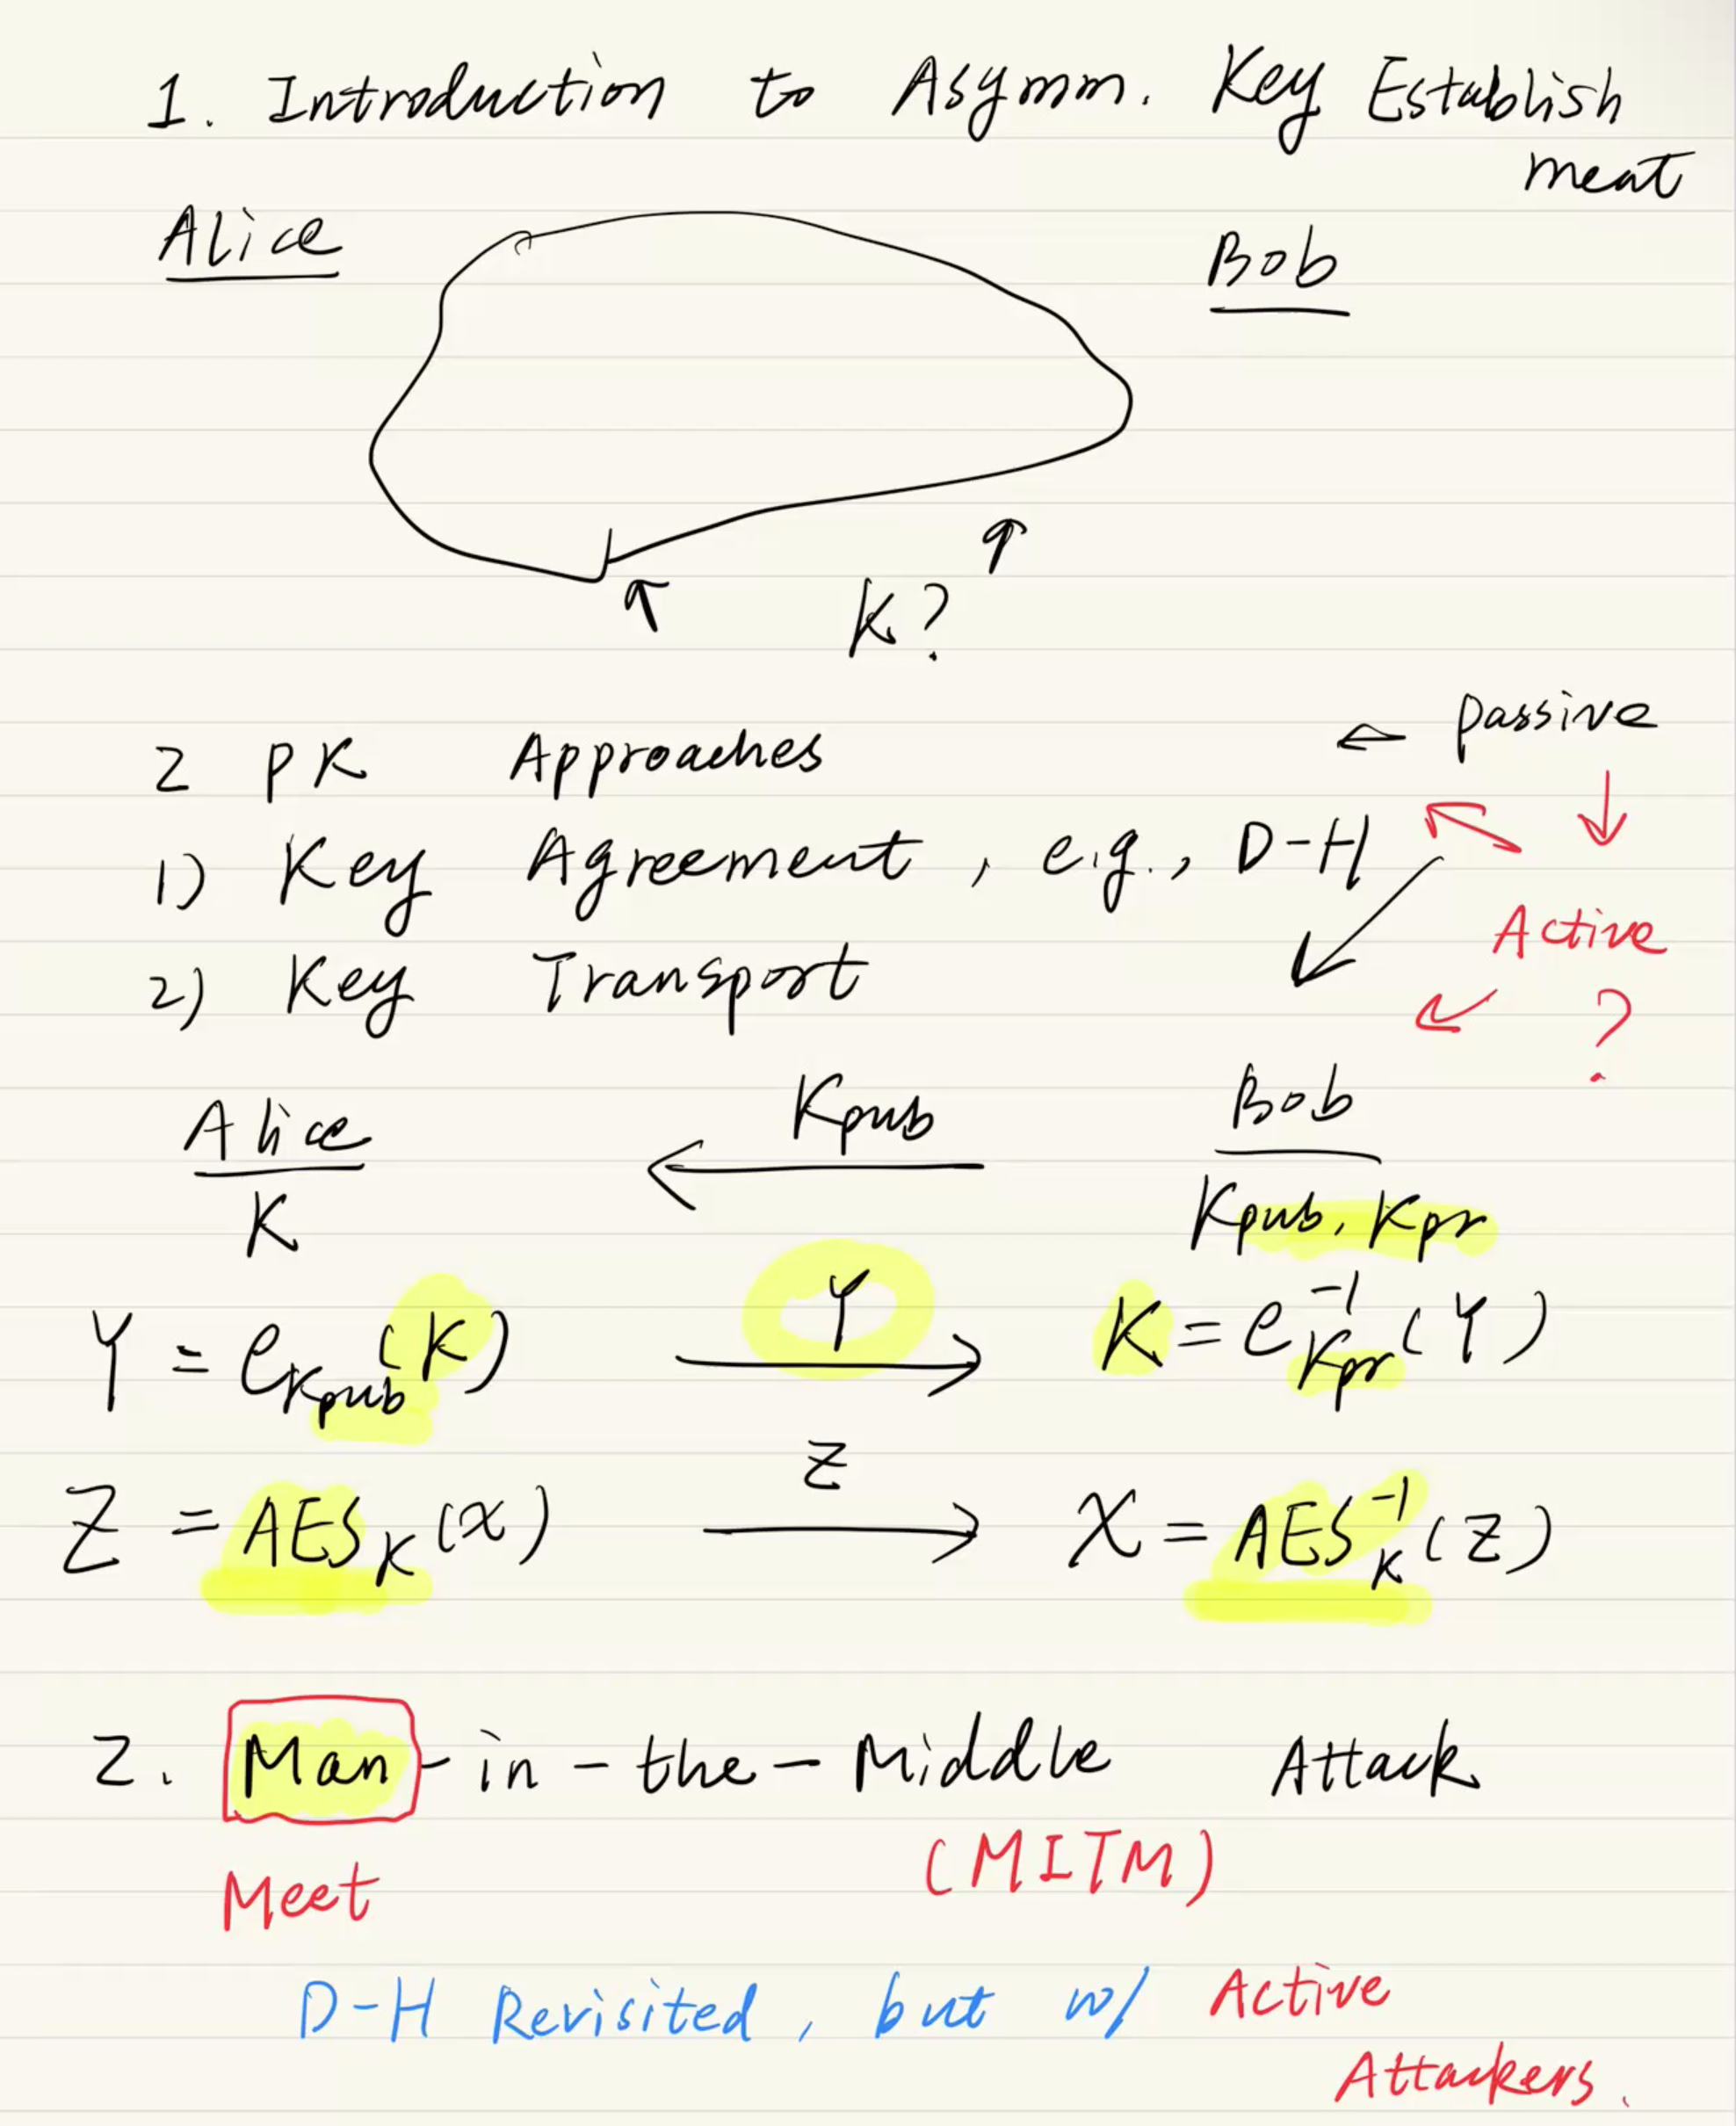 1. Introduction to Asymm. Key Establish
ment
Alice Bob
K?
← passive
2 PK Approaches
1) Key Agreement, e.g., D-H
Active
2) Key Transport
?
Alice Kpub Bob
K Kpub, Kpr
Y = e_Kpub(K) Y K = e^-1_Kpr(Y)
Z
Z = AES_K(x) X = AES^-1_K(Z)
2. Man-in-the-Middle Attack
(MITM)
Meet
D-H Revisited, but w/ Active
Attackers.